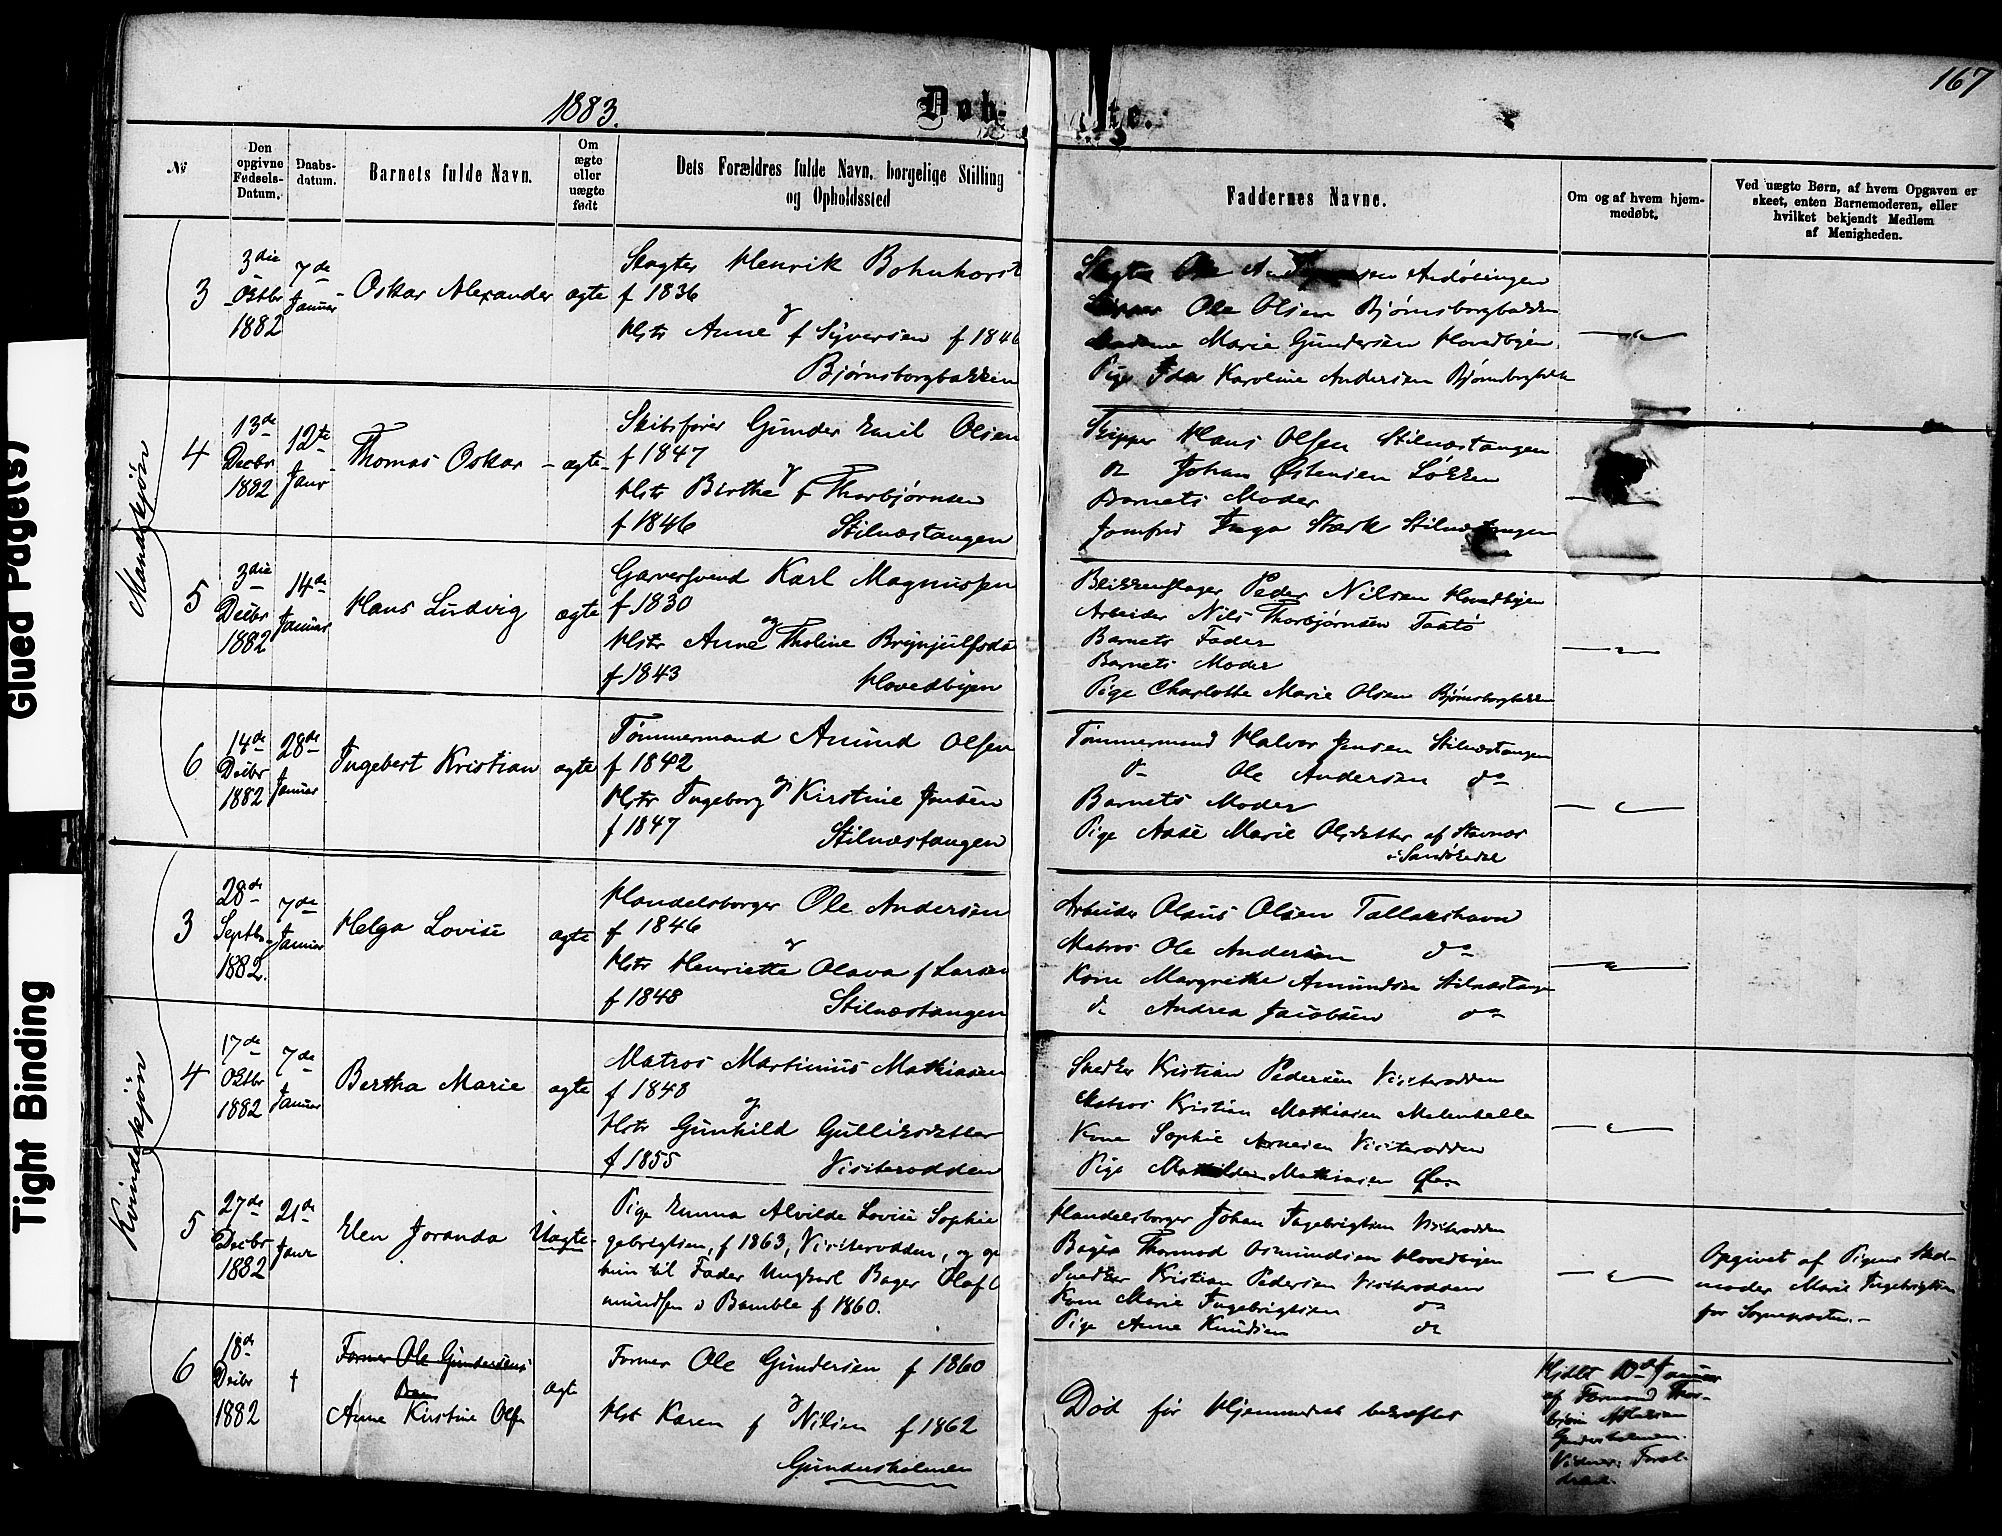 Glued Page(s)
Tight Binding
1883.
Døbte.
167
No
Den opgivne Fødsels-Datum.
Daabs-datum.
Barnets fulde Navn.
Om ægte eller uægte født
Dets Forældres fulde Navn, borgelige Stilling og Opholdssted
Faddernes Navne.
Om og af hvem hjem-medøbt.
Ved uægte Børn, af hvem Opgaven er skeet, enten Barnemoderen, eller hvilket bekjendt Medlem af Menigheden.
Mandkjøn
3
3die Oktbr 1882
7de Januar
Oskar Alexander
ægte
Slagter Henrik Bohnhorst
f 1836
og
Hstr Anne f Syversen f 1846
Bjørnsborgbakken
Ole
Ole Olsen Bjørnsborgbakken
Madame Marie Gundersen Hovedbyen
Pige Ida Karoline Andersen Bjørnsborgbakk
4
13de Decbr 1882
12te Janr
Thomas Oskar
ægte
Skibsfører Gunder Emil Olsen
f 1847
og
Hstr Birthe f Thorbjørnsen
f 1846 Stilnæstangen
Skipper Hans Olsen Stilnæstangen
do Johan Østensen Løkken
Barnets Moder
Jomfru Inga Stærk Stilnæstangen
5
3die Decbr 1882
14de Januar
Hans Ludvig
ægte
Garversvend Karl Magnussen
f 1830
og
Hstr Anne Tholine Brynjulfsda
f 1843 Hovedbyen
Blikkenslager Peder Nilsen Hovedbyen
Arbeider Nils Thorbjørnsen Taatø
Barnets Fader
Barnets Moder
Pige Charlotte Marie Olsen Bjørnsborgbakken
6
14de Decbr 1882
28de Januar
Ingebert Kristian
ægte
Tømmermand Amund Olsen
f 1842
og
Hstr Ingeborg Kirstine Jensen
f 1847 Stilnæstangen
Tømmermand Halvor Jensen Stilnæstangen
do Ole Andersen do
Barnets Moder
Pige Aase Marie Olsdatter af Stavnæs
i Sandøkedal
Kvindekjøn
3
28de Septbr 1882.
7de Januar
Helga Lovise
ægte
Handelsborger Ole Andersen
f 1846
og
Hstr Henriette Olava f Larsen
f 1848 Stilnæstangen
Arbeider Olaus Olsen Tallakshavn
Matros Ole Andersen do
Kone Margrethe Amundsen Stilnæstange
do Andrea Jacobsen do
4
17de Oktbr 1882
7de Januar
Bertha Marie
ægte
Matros Martinius Mathiasen
f 1848
og
Hstr Gunhild Gulliksdatter
f 1855 Visiterodden
Snedker Kristian Pedersen Visiterodden
Matros Kristian Mathiasen
Kone Sophie Arnesen Visiterodden
Pige Mathilde Mathiasen Øen
5
27de Decbr 1882
21de Janr
Elen Joranda
Uægte
Pige Emma Alvilde Lovise Sophie
gebrigtsen, f 1863, Visiterodden, og op
hun til Fader Ungkarl Bager Olaf
mundsen i Bamble f 1860.
Handelsborger Johan Ingebrigtsen Visiterodden
Bager Thormod Osmundsen Hovedbyen
Snedker Kristian Pedersen Visiterodden
Kone Marie Ingebrigtsen do
Pige Anne Knudsen do
Opgivet af Pigens Sted-
moder Marie Ingebrigtsen
for Sognepresten.
6
18de Decbr 1882
†
Former Ole Gundersens
Barn
Anne Kirstine Olsn
ægte
Former Ole Gundersen f 1860
og
Hst Karen f Nilsen f 1862
Gundersholmen
Død før Hjemmedaab bekræftet
Hjdbt Januar
af Formand Thor-
bjørn
Gundersholmen.
Vidner: Foræl-
drene.